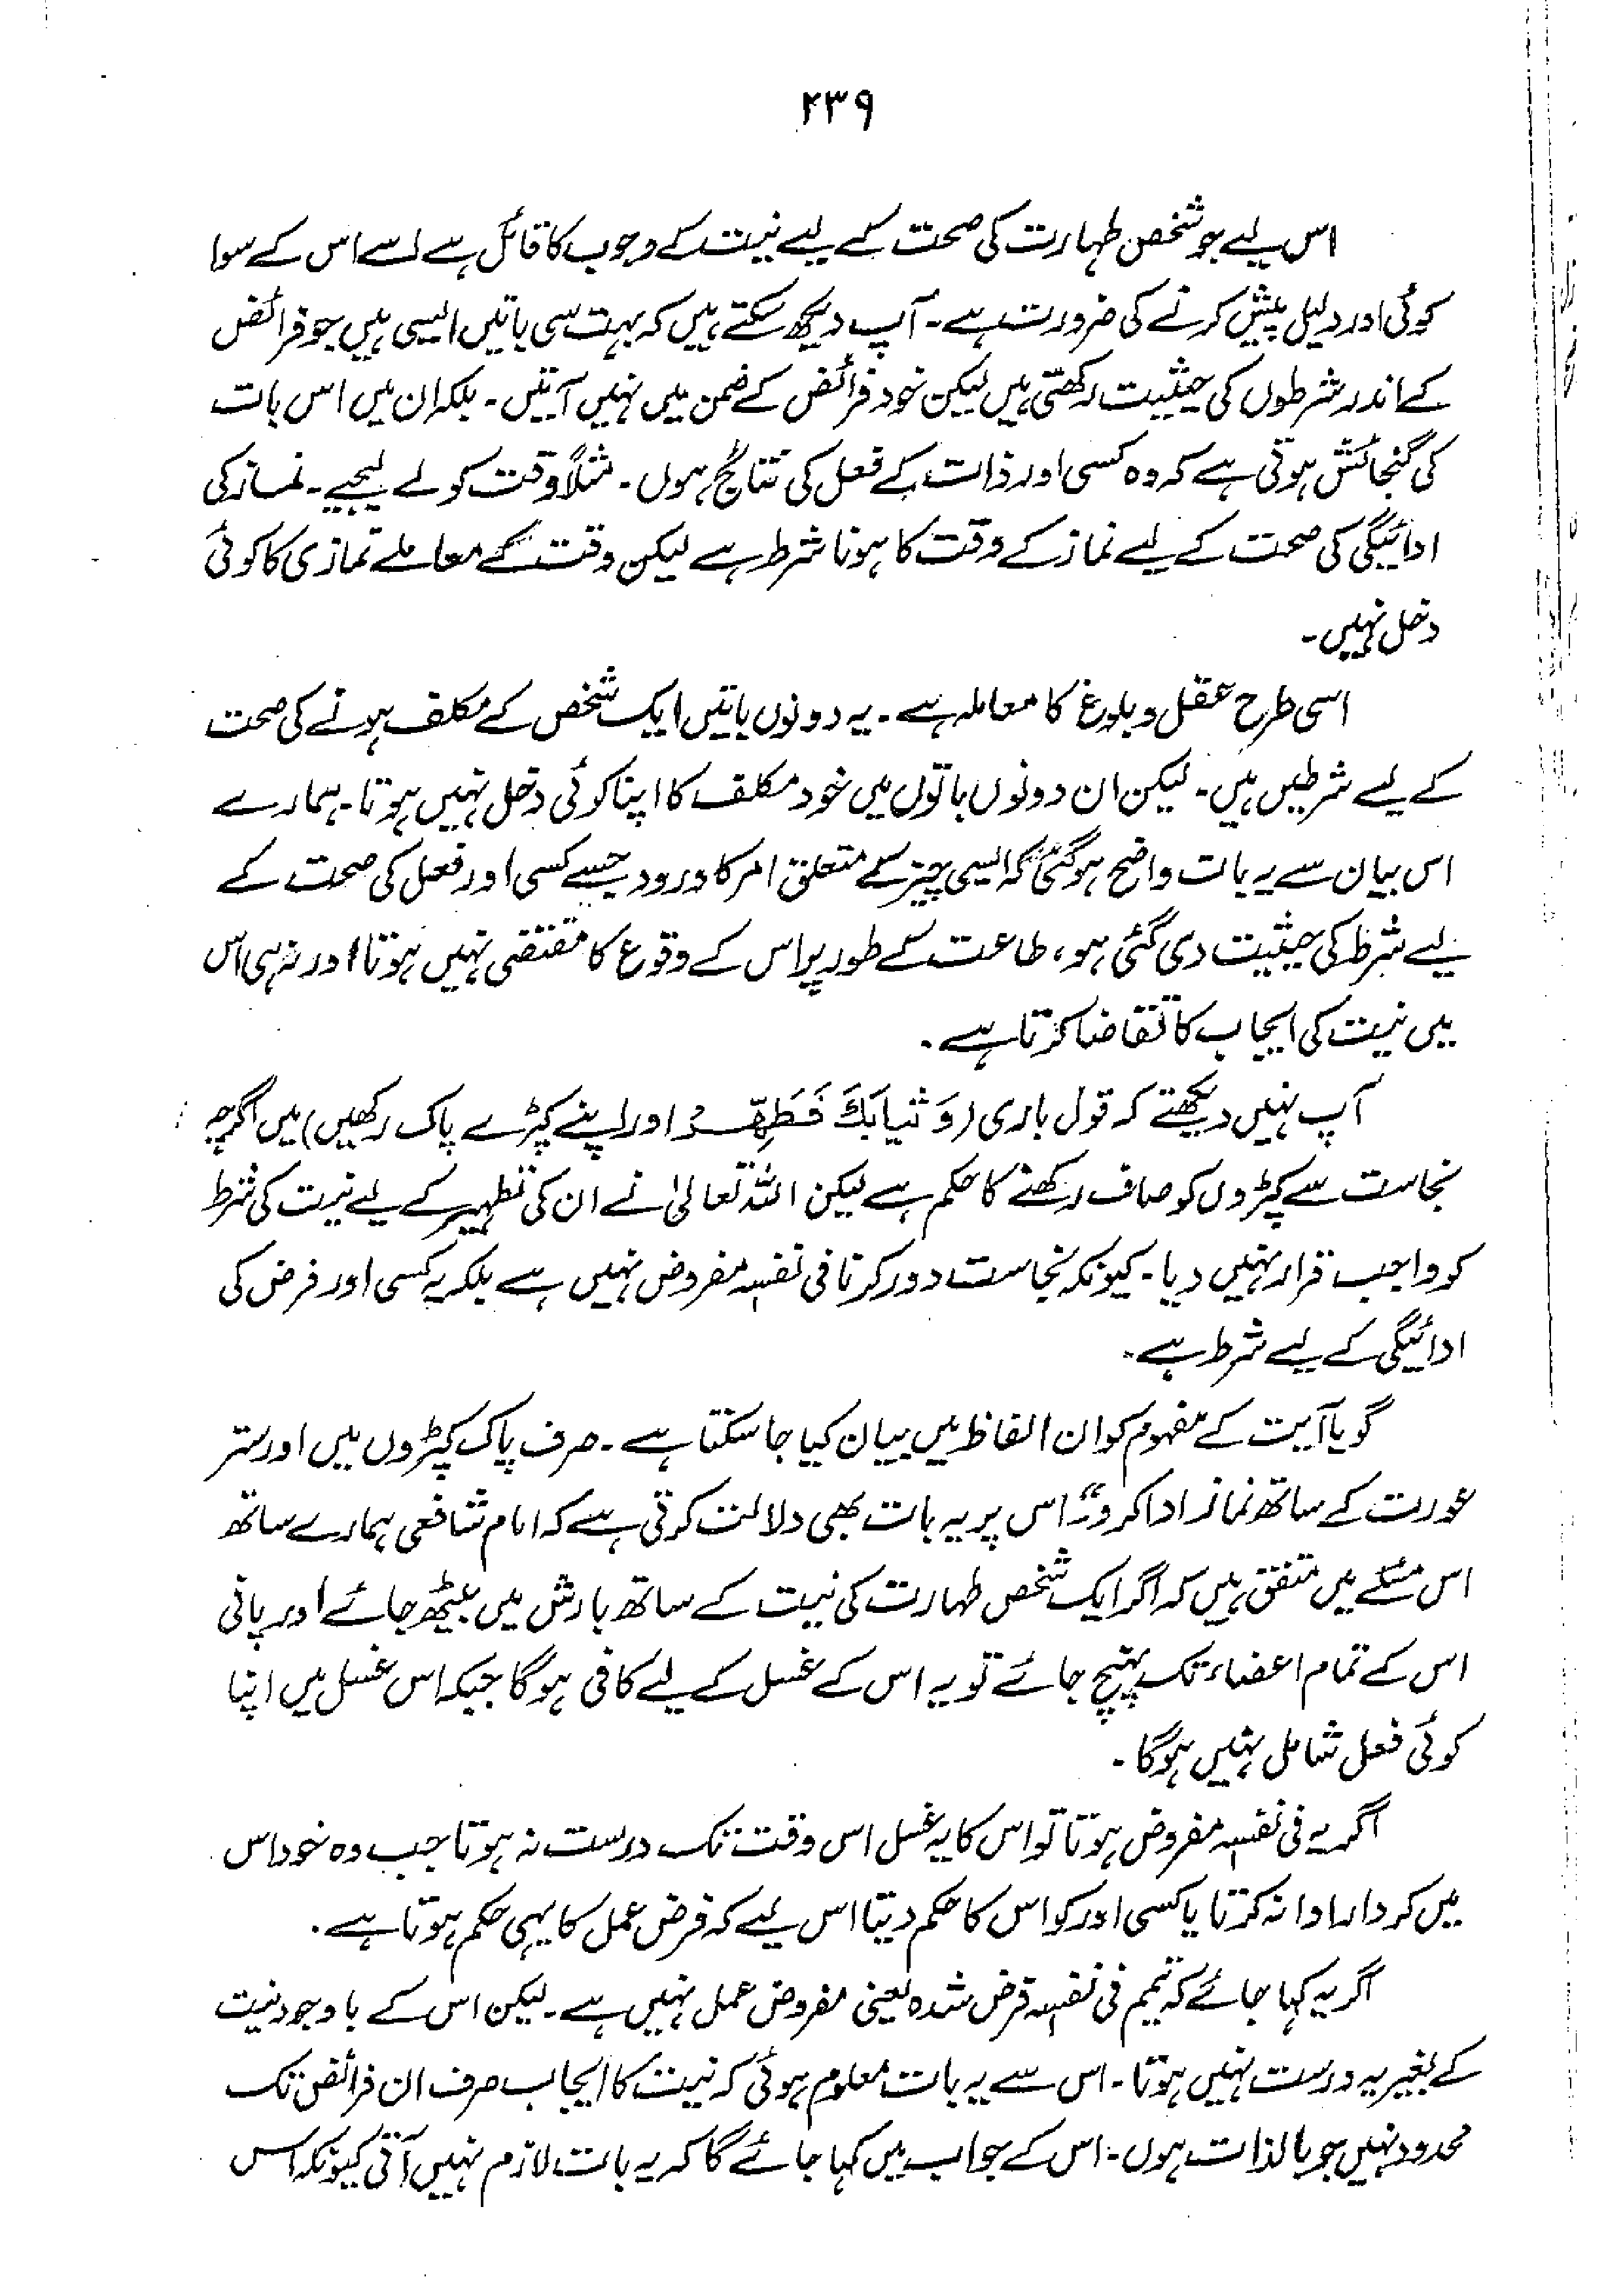 ۲۳۹
اس لیے جو شخص طہارت کی صحت کے لیے نیت کے وجوب کا قائل ہے اسے اس کے سوا
کوئی اور دلیل پیش کرنے کی ضرورت ہے۔ آپ دیکھ سکتے ہیں کہ بہت سی باتیں ایسی ہیں جو فرائض
کے اندر شرطوں کی حیثیت رکھتی ہیں لیکن خود فرائض کے ضمن میں نہیں آتیں۔ بلکہ ان میں اس بات
کی گنجائش ہوتی ہے کہ وہ کسی اور ذات کے فعل کی نتائج ہوں۔ مثلاً وقت کو لے لیجیے۔ نماز کی
ادائیگی کی صحت کے لیے نماز کے وقت کا ہونا شرط ہے لیکن وقت کے معاملے نمازی کا کوئی
دخل نہیں۔
اسی طرح عقل و بلوغ کا معاملہ ہے۔ یہ دونوں باتیں ایک شخص کے مکلف ہونے کی صحت
کے لیے شرطیں ہیں۔ لیکن ان دونوں باتوں میں خود مکلف کا اپنا کوئی دخل نہیں ہوتا۔ ہمارے
اس بیان سے یہ بات واضح ہوگئی کہ ایسی چیز کے متعلق امر کا ورود جسے کسی اور فعل کی صحت کے
لیے شرط کی حیثیت دی گئی ہو، طاعت کے طور پر اس کے وقوع کا مقتضی نہیں ہوتا اور نہ ہی اس
میں نیت کی ایجاب کا تقاضا کرتا ہے۔
آپ نہیں دیکھتے کہ قول باری (وَثیابَکَ فَطَھِّرْ اور اپنے کپڑے پاک رکھیں) میں اگرچہ
نجاست سے کپڑوں کو صاف رکھنے کا حکم ہے لیکن اللہ تعالیٰ نے ان کی تطہیر کے لیے نیت کی شرط
کو واجب قرار نہیں دیا۔ کیونکہ نجاست دور کرنا فی نفسہٖ مفروض نہیں ہے بلکہ یہ کسی اور فرض کی
ادائیگی کے لیے شرط ہے۔
گویا آیت کے مفہوم کو ان الفاظ میں بیان کیا جاسکتا ہے۔ صرف پاک کپڑوں میں اور ستر
عورت کے ساتھ نماز ادا کرو" اس پر یہ بات بھی دلالت کرتی ہے کہ امام شافعی ہمارے ساتھ
اس مسئلے میں متفق ہیں کہ اگر ایک شخص طہارت کی نیت کے ساتھ بارش میں بیٹھ جائے اور پانی
اس کے تمام اعضاء تک پہنچ جائے تو یہ اس کے غسل کے لیے کافی ہوگا جبکہ اس غسل میں اپنا
کوئی فعل شامل نہیں ہوگا۔
اگر یہ فی نفسہٖ مفروض ہوتا تو اس کا یہ غسل اس وقت تک درست نہ ہوتا جب وہ خود اس
میں کردار ادا نہ کرتا یا کسی اور کو اس کا حکم دیتا اس لیے کہ فرض عمل کا یہی حکم ہوتا ہے۔
اگر یہ کہا جائے کہ تیمم فی نفسہٖ فرض شدہ یعنی مفروض عمل نہیں ہے۔ لیکن اس کے باوجود نیت
کے بغیر یہ درست نہیں ہوتا۔ اس سے یہ بات معلوم ہوئی کہ نیت کا ایجاب صرف ان فرائض تک
محدود نہیں جو بالذات ہوں۔ اس کے جواب میں کہا جائے گا کہ یہ بات لازم نہیں آتی کیونکہ اس